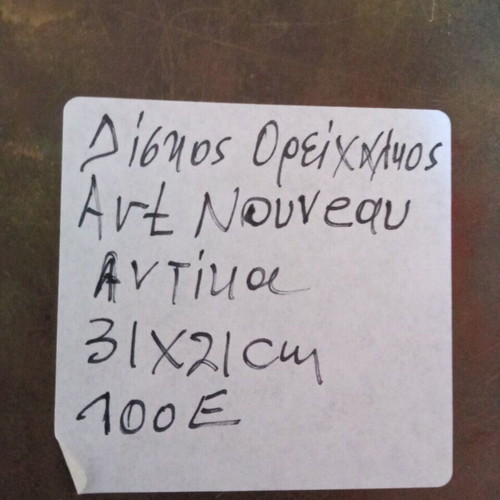 Δίσκος Ορείχαλκος
Art Nouveau
Αντίκα
31X21cm
100E